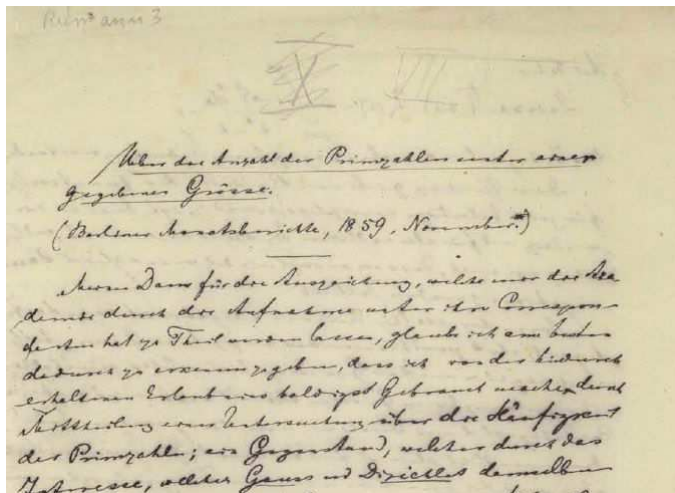 Riemann 3
V VII
Ueber die Anzahl der Primzahlen unter einer
gegebenen Grösse.
(Berliner Monatsberichte, 1859, November.)
Meinen Dank für die Auszeichnung, welche mir die Aka-
demie durch die Aufnahme unter ihre Correspon-
denten hat zu Theil werden lassen, glaube ich am besten
dadurch zu erkennen zu geben, dass ich von der hiedurch
erhaltenen Erlaubniss baldigst Gebrauch mache durch
Mittheilung einer Untersuchung über die Häufigkeit
der Primzahlen; ein Gegenstand, welcher durch das
Interesse, welches Gauss und Dirichlet demselben